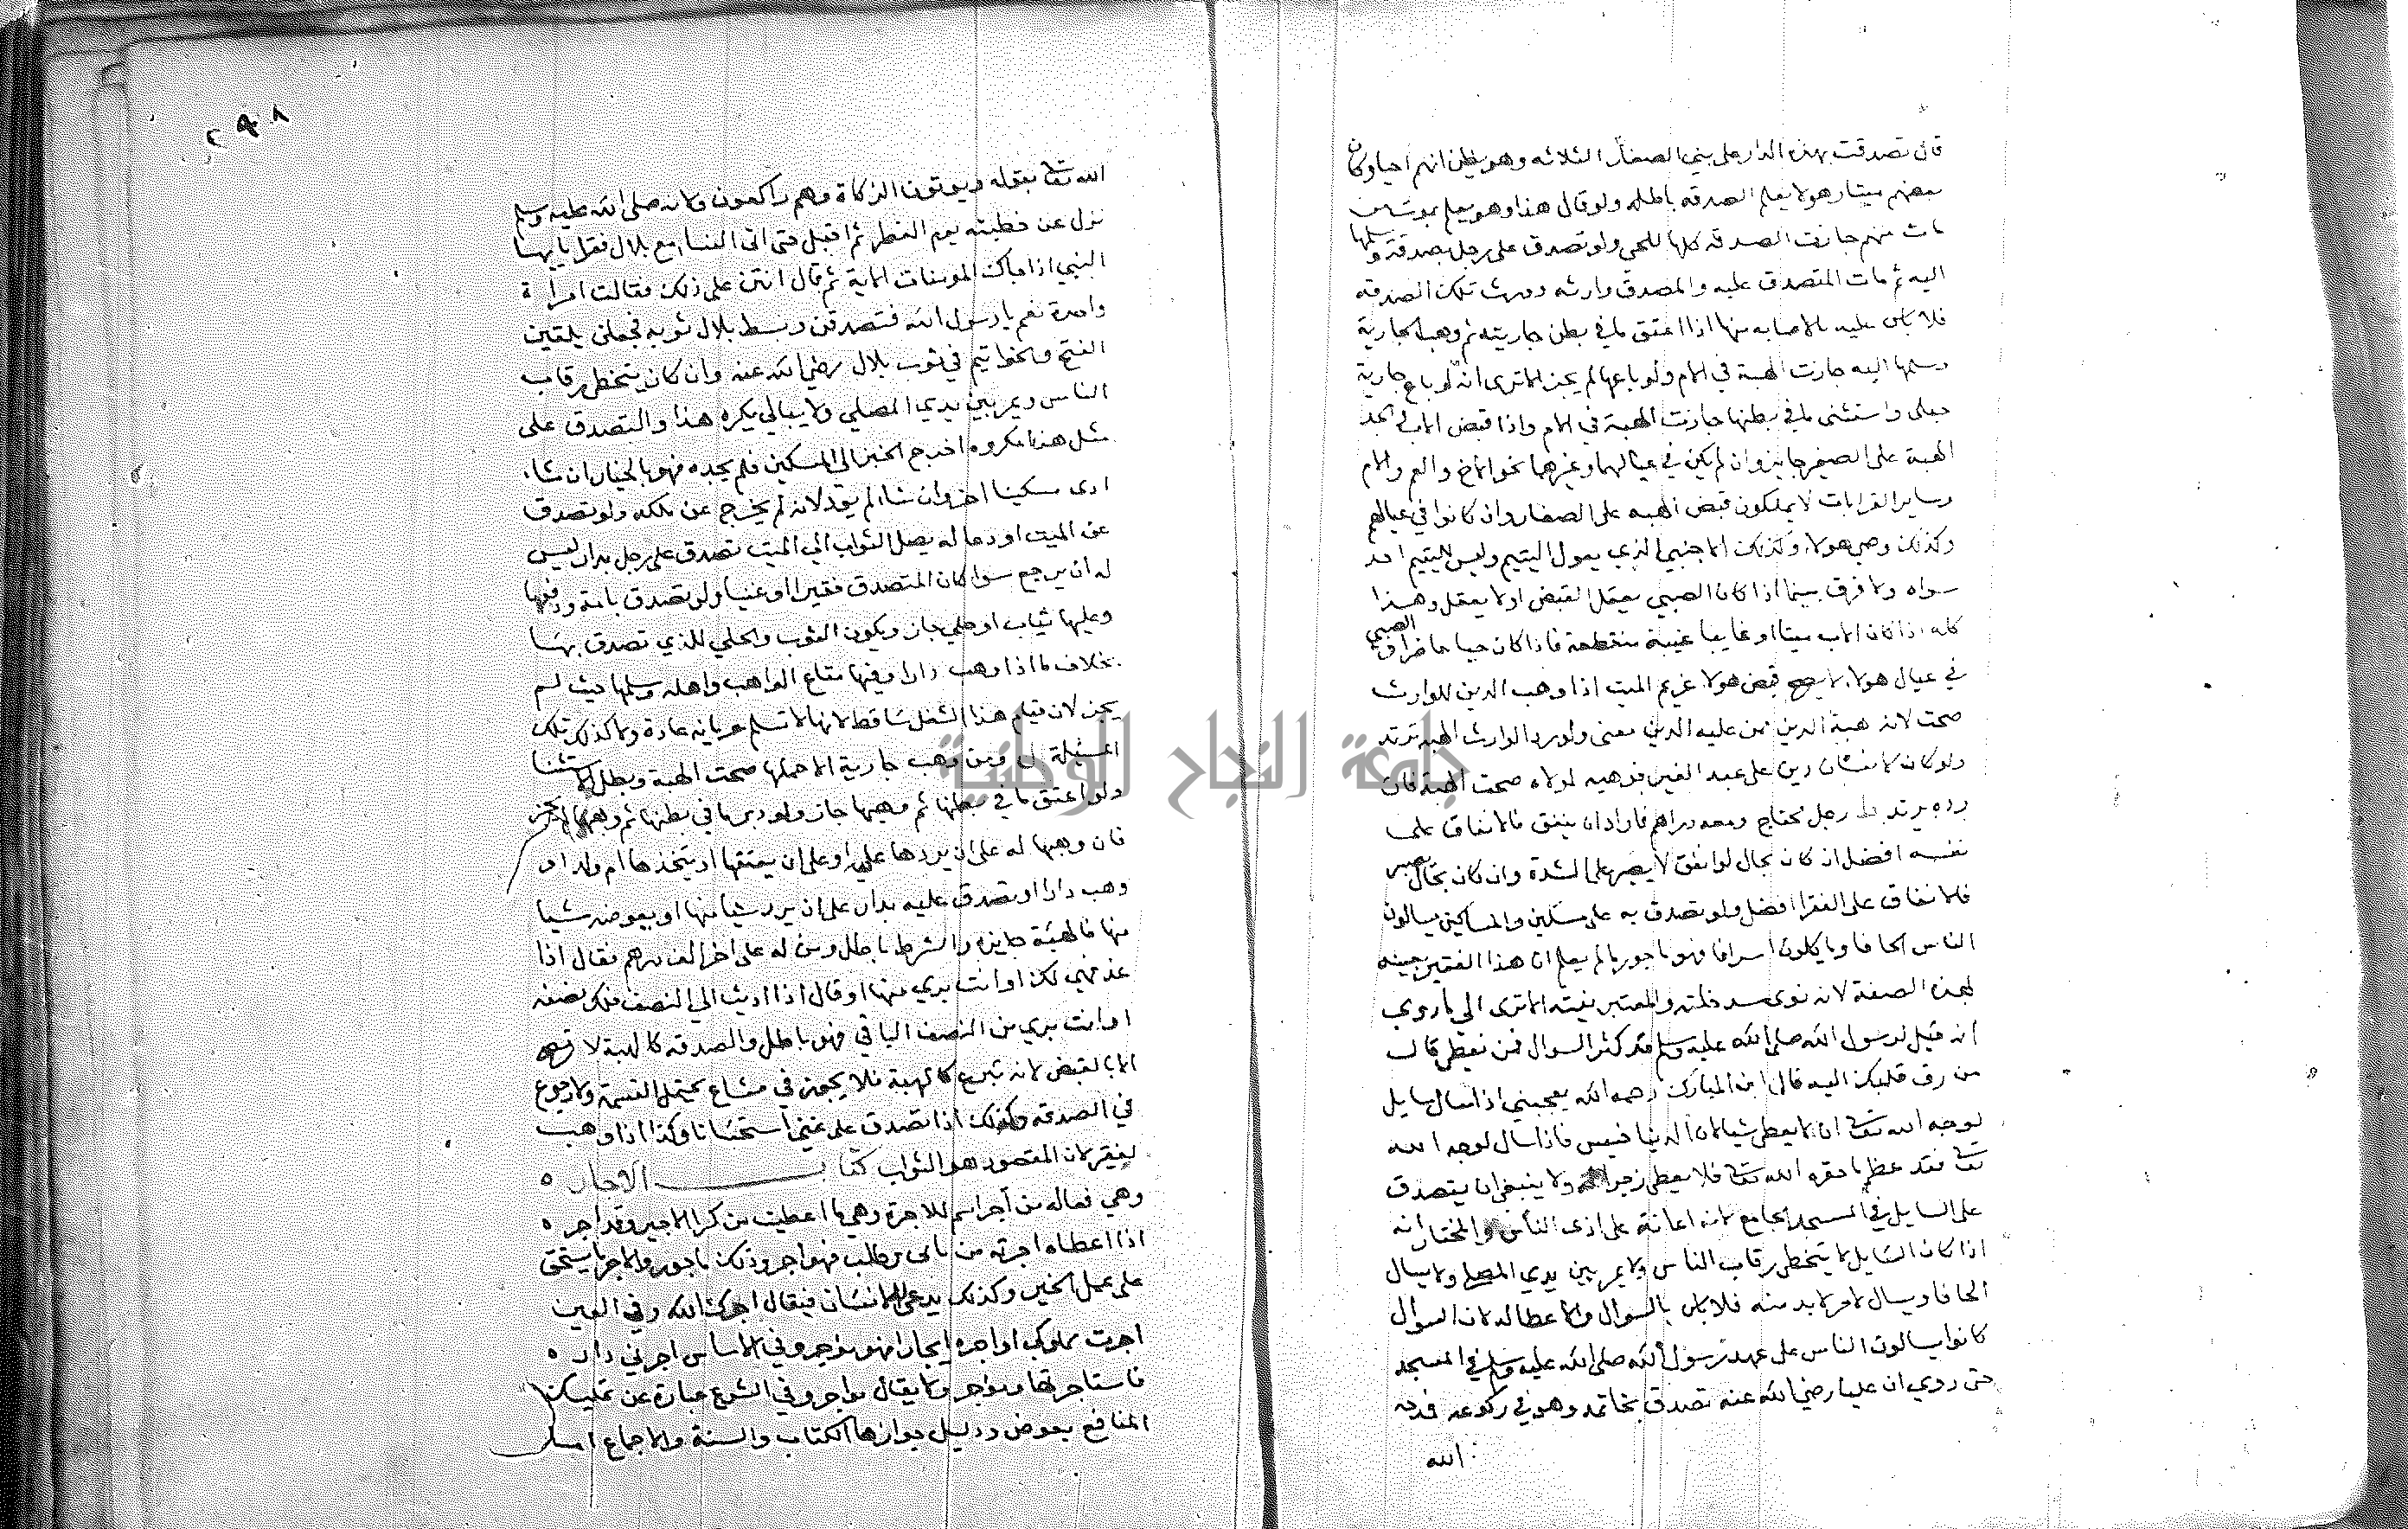 قال تصدقت بهذه الدار على بني الصغار الثلاثه وهو يظن انهم احيا وكان
بعضهم ميتا وهو لا يعلم الصدقه باطله ولو قال هذا وهو يعلم بموت من
مات منهم جازت الصدقه كلها للحي ولو تصدق على رجل بصدقة وسلمها
اليه ثم مات المتصدق عليه والمصدق وارثه وورث تلك الصدقه
فلا باس عليه بالاصابه منها اذا اعتق ما في بطن جاريته ثم وهب الجارية
وسلمها اليه جازت الهبة في الام ولو باعها لم يجز الا ترى انه لو باع جارية
حبلى واستثنى ما في بطنها جازت الهبة في الام واذا قبض الاب او الجد
الهبة على الصغير جايز وان لم يكن في عيالهما وغيرهما نحو الاخ والعم والام
وساير القرابات لا يملكون قبض الهبه على الصغار وان كانوا في عيالهم
وكذلك وصي هولاء وكذلك الاجنبي الذي يعول اليتيم وليس لليتيم احد
سواه ولا فرق بينما اذا كان الصبي يعقل القبض او لا يعقل وهذا
كله اذا كان الاب ميتا او غايبا غيبة منقطعة فاذا كان حيا حاضرا والصبي
في عيال هولاء لا يصح قبض هولا غريم الميت اذا وهب الدين للوارث
صحت لانه هبة الدين ممن عليه الدين معنى ولو رد الوارث الهبه ترتد
ولو كان لانسان دين على عبد الغير فوهبه لمولاه صحت الهبة فان
رده يرتد رجل محتاج ومعه دراهم فاراد ان ينفق فالانفاق على
نفسه افضل ان كان بحال لو انفق لا يصبر على الشدة وان كان بحال يصبر
فالانفاق على الفقرا افضل ولو تصدق به على مسكين والمساكين يسالون
الناس الحافا وياكلون اسرافا فهو ماجور ما لم يعلم ان هذا الفقير بعينه
بهذه الصفة لانه نوى سد خلته والمعتبر نيته الا ترى الى ما روي
انه قيل لرسول الله صلى الله عليه وسلم قد كثر السوال فمن نعطي قال
من رق قلبك اليه قال ابن المبارك رحمه الله يعجبني اذا سال سايل
لوجه الله تعالى ان لا يعطى شيا لان الدنيا خسيس فاذا سال لوجه الله
تعالى فقد عظم ما حقره الله تعالى فلا يعطى زجرا ولا ينبغي ان يتصدق
على السايل في المسجد الجامع لانه اعانة على اذى الناس والمختار انه
اذا كان السايل لا يتخطى رقاب الناس ولا يمر بين يدي المصلي ولا يسال
الحافا ويسال لامر لا بد منه فلا باس بالسوال والاعطا له لان السوال
كانوا يسالون الناس على عهد رسول الله صلى الله عليه وسلم في المسجد
حتى روي ان عليا رضي الله عنه تصدق بخاتمه وهو في ركوعه فمدحه
الله
٢٩٨
الله تعالى بقوله ويوتون الزكاة وهم راكعون ولانه صلى الله عليه وسلم
نزل عن خطبته يوم الفطر ثم اقبل حتى اتى النساء مع بلال فقرا يا ايها
النبي اذا جاك المومنات الاية ثم قال انتن على ذلك فقالت امراة
واحدة نعم يا رسول الله فتصدقن وبسط بلال ثوبه فجعلن يلقين
الفتخ والخواتيم في ثوب بلال رضي الله عنه وان كان يتخطى رقاب
الناس ويمر بين يدي المصلي ولا يبالي يكره هذا والتصدق على
مثل هذا مكروه اخرج الخبز الى المسكين فلم يجده فهو بالخيار ان شاء
ادى مسكينا اخر وان شاء لم يود لانه لم يخرج عن ملكه ولو تصدق
عن الميت او دعا له يصل الثواب الى الميت تصدق على رجل بدار ليس
له ان يرجع سوا كان المتصدق فقيرا او غنيا ولو تصدق بامة ودفعها
وعليها ثياب او حلي جاز ويكون الثوب والحلي للذي تصدق بها
بخلاف ما اذا وهب دارا وفيها متاع الواهب واهله وسلمها حيث لم
يجز لان قيام هذا الشغل ساقط لانها لا تسلم عريانه عادة ولا كذلك تلك
المسئلة ومن وهب جارية الا حملها صحت الهبة وبطل الاستثنا
ولو اعتق ما في بطنها ثم وهبها جاز ولو دبر ما في بطنها ثم وهبها لم يجز
فان وهبها له على ان يردها عليه او على ان يعتقها او يتخذها ام ولد او
وهب دارا او تصدق عليه بدار على ان يرد شيا منها او يعوضه شيا
منها فالهبة جايزه والشرط باطل ومن له على اخر الف درهم فقال اذا
غد فهي لك او انت بري منها او قال اذا اديت الي النصف فلك نصفه
او انت بري من النصف الباقي فهو باطل والصدقه كالهبة لا تصح
الا بالقبض لانه تبرع كالهبة فلا يجوز في مشاع يحتمل القسمة ولا رجوع
في الصدقه وكذلك اذا تصدق على غني استحسانا وكذا اذا وهب
لفقير لان المقصود هو الثواب كتاب الاجاره
وهي فعاله من أجر اسم للاجرة وهي ما اعطيت من كرا الاجير وقد اجره
اذا اعطاه اجرته من باب طلب فهو اجر وذلك ماجور والاجر ما يستحق
على عمل الخير وكذلك يدعى للانسان فيقال اجرك الله وفي العين
اجرت مملوكي اواجره ايجارا فهو مؤجر وفي الاساس اجرني داره
فاستاجرتها وهو مؤجر ولا يقال مواجر وفي الشرع عبارة عن تمليك
المنافع بعوض ودليل جوازها الكتاب والسنة والاجماع اما
جامعة النجاح الوطنية